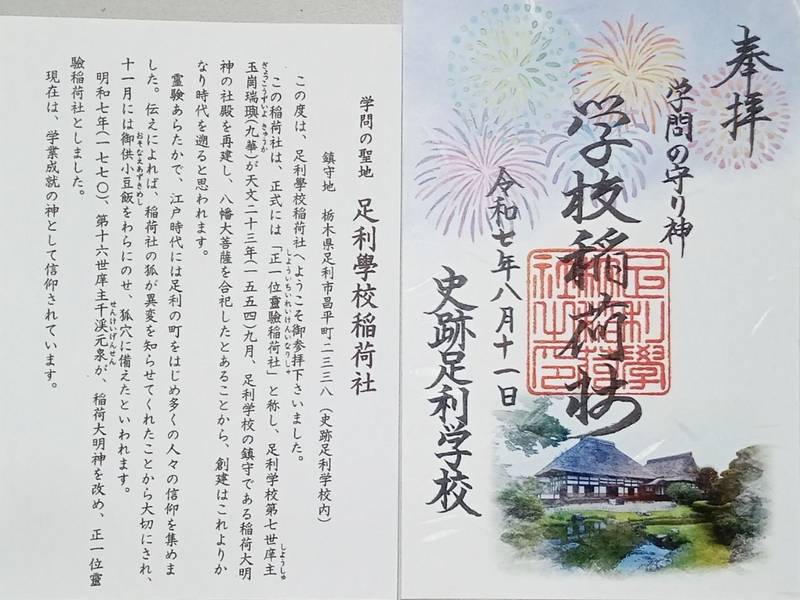 奉拝
学問の守り神
学校稲荷社
令和七年八月十一日
史跡足利学校
学問の聖地 足利學校稲荷社
鎮守地 栃木県足利市昌平町二三三八(史跡足利学校内)
この度は、足利學校稲荷社へようこそ御参拝下さいました。
しょういちいれいけんいなりしゃ しょうしゅ
この稲荷社は、正式には「正一位靈験稲荷社」と称し、足利学校第七世庠主
ぎょくこうずいよ きゅうか
玉崗瑞璵(九華)が天文二十三年(一五五四)九月、足利学校の鎮守である稲荷大明
神の社殿を再建し、八幡大菩薩を合祀したとあることから、創建はこれよりか
なり時代を遡ると思われます。
靈験あらたかで、江戸時代には足利の町をはじめ多くの人々の信仰を集めま
した。伝えによれば、稲荷社の狐が異変を知らせてくれたことから大切にされ、
おそなえあずきめし
十一月には御供小豆飯をわらにのせ、狐穴に備えたといわれます。
せんけいげんせん
明和七年(一七七〇)、第十六世庠主千渓元泉が、稲荷大明神を改め、正一位靈
験稲荷社としました。
現在は、学業成就の神として信仰されています。